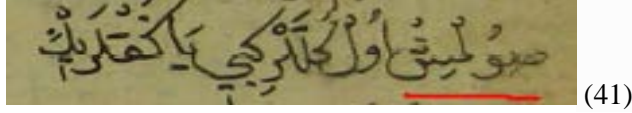 صوُلْمِشْ اُولْ كُللَرْ كِبِي يَاكَقْلَرِيكْ (41)